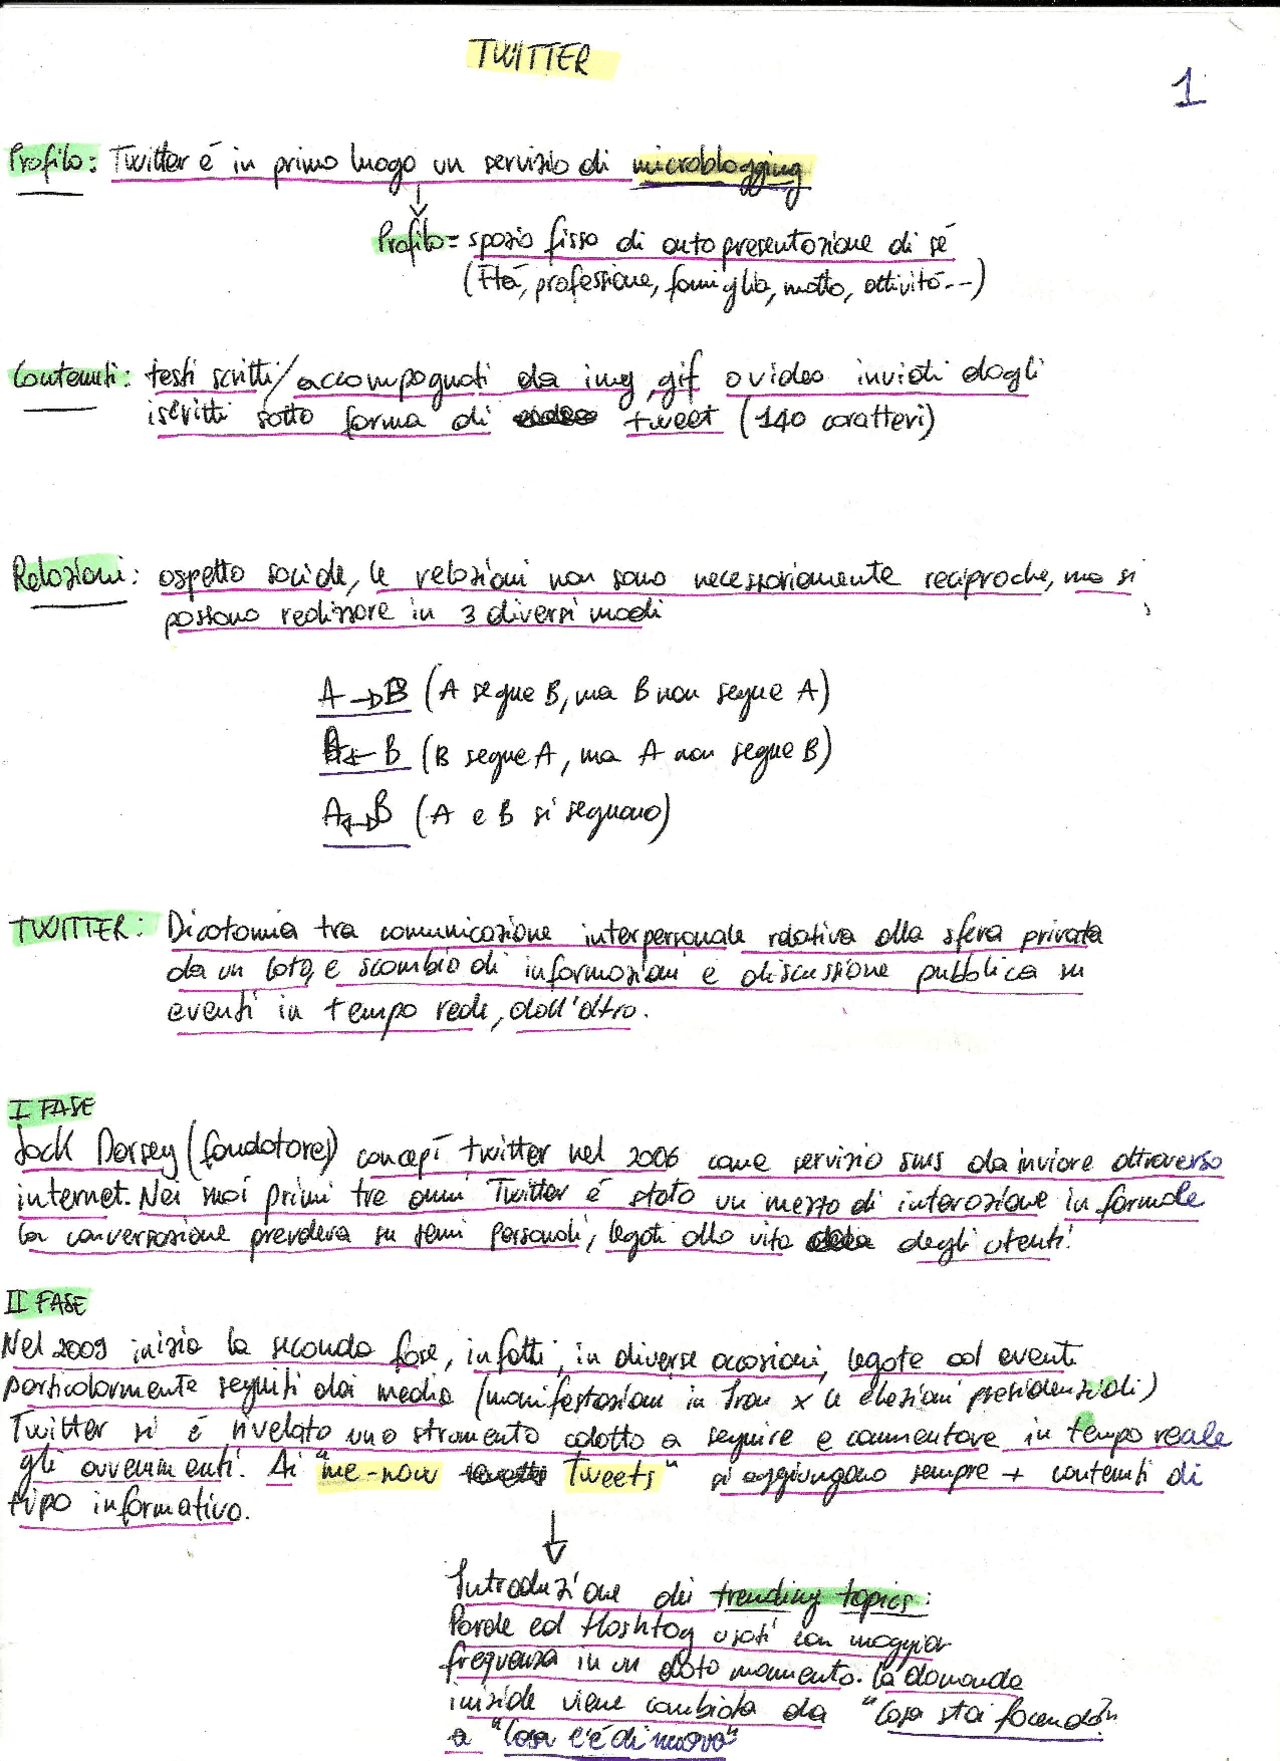 TWITTER
1
Profilo: Twitter é in primo luogo un servizio di microblogging
Profilo = spazio fisso di autopresentazione di sé
(Età, professione, famiglia, motto, attività...)
Contenuti: testi scritti/accompagnati da img, gif o video inviati dagli
iscritti sotto forma di tweet (140 caratteri)
Relazioni: aspetto sociale, le relazioni non sono necessariamente reciproche, ma si
possono realizzare in 3 diversi modi
A → B (A segue B, ma B non segue A)
A ← B (B segue A, ma A non segue B)
A ↔ B (A e B si seguono)
TWITTER: Dicotomia tra comunicazione interpersonale relativa alla sfera privata
da un lato, e scambio di informazioni e discussione pubblica su
eventi in tempo reale, dall'altro.
I FASE
Jack Dorsey (fondatore) concepì twitter nel 2006 come servizio sms da inviare attraverso
internet. Nei suoi primi tre anni Twitter é stato un mezzo di interazione informale
la conversazione prevaleva su temi personali, legati alla vita degli utenti.
II FASE
Nel 2009 inizia la seconda fase, infatti, in diverse occasioni, legate ad eventi
particolarmente seguiti dai media (manifestazioni in Iran x le elezioni presidenziali)
Twitter si é rivelato uno strumento adatto a seguire e commentare in tempo reale
gli avvenimenti. Ai "me-now Tweets" si aggiungono sempre + contenuti di
tipo informativo.
↓
Introduzione dei trending topics:
Parole ed Hashtag usati con maggior
frequenza in un dato momento. La domanda
iniziale viene cambiata da "Cosa stai facendo?"
a "Cosa c'é di nuovo"